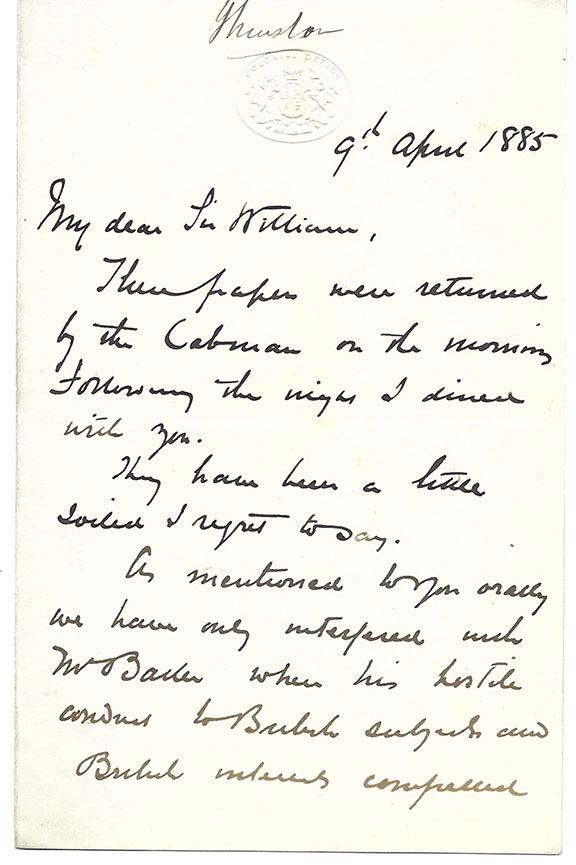 Thurston
COLONIAL OFFICE
9th April 1885
My dear Sir William,
These papers were returned
by the Cabman on the morning
following the night I dined
with you.
They have been a little
soiled I regret to say.
As mentioned to you orally
we have only interfered with
Mr Baker when his hostile
conduct to British subjects and
British interests compelled